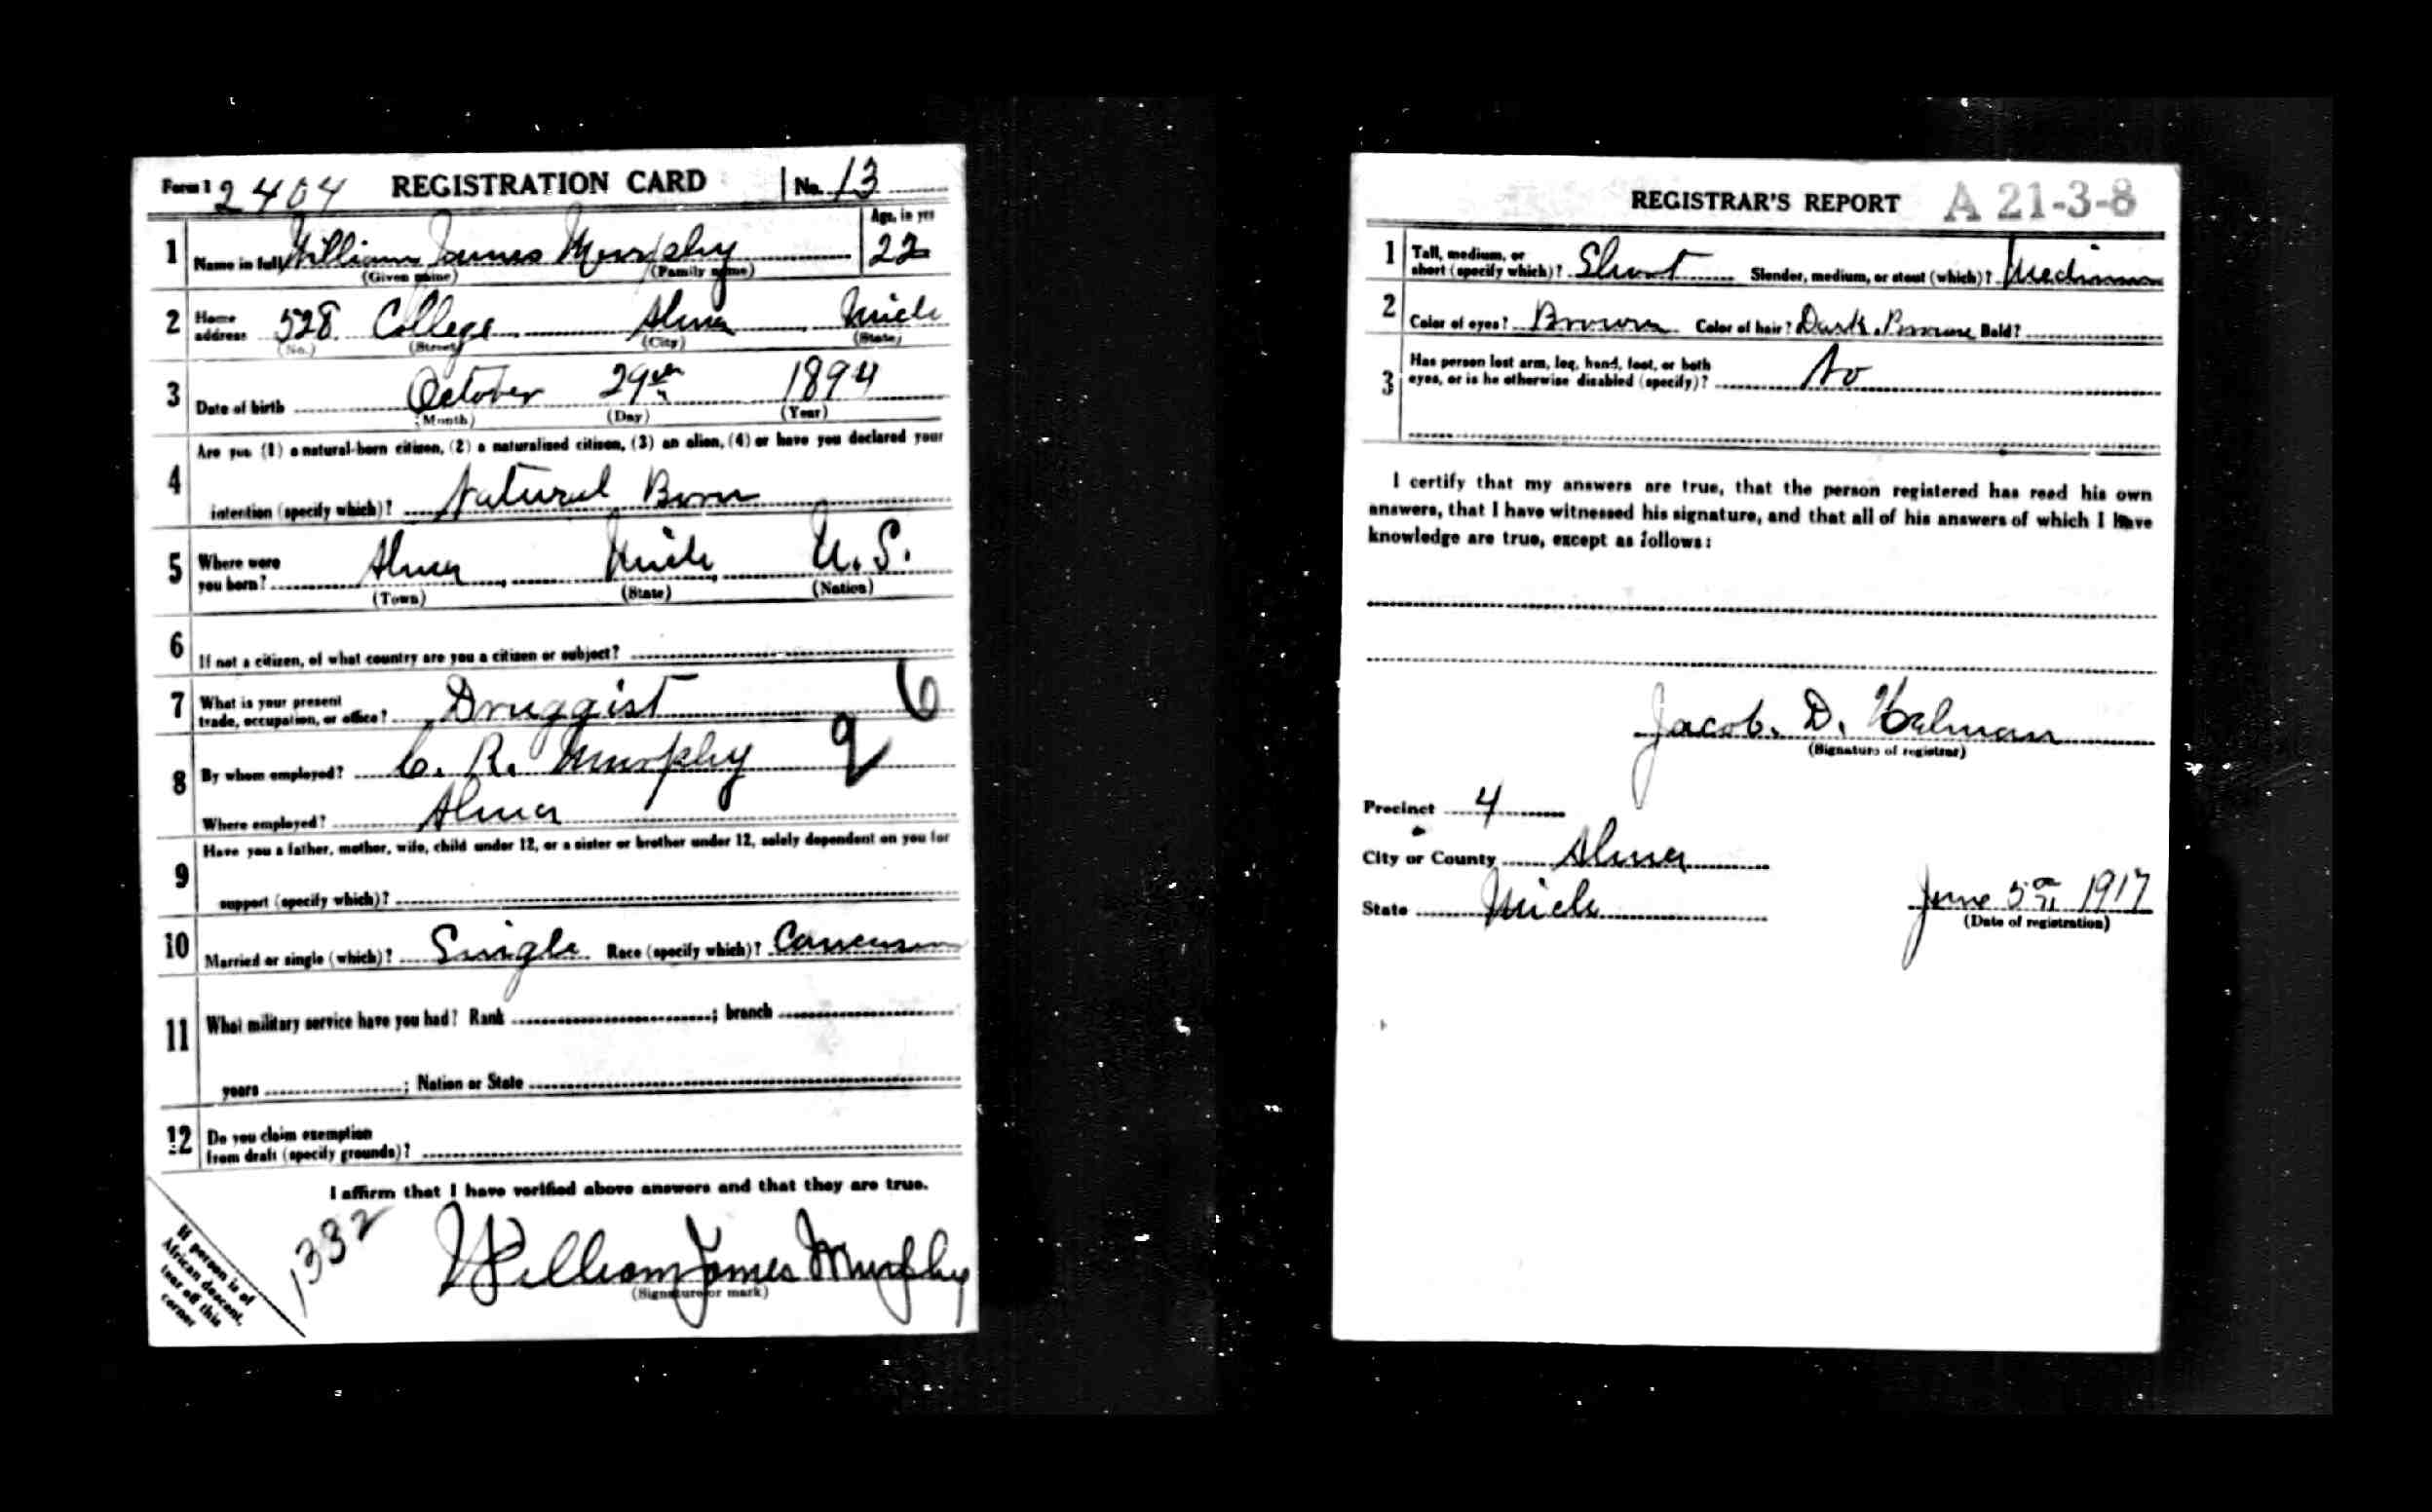 Form 1 2404 REGISTRATION CARD No. 13
1 Name in full William James Murphy Age, in yrs 22
(Given name) (Family name)
2 Home address 528 College Alma Mich
(No.) (Street) (City) (State)
3 Date of birth October 29th 1894
(Month) (Day) (Year)
4 Are you (1) a natural-born citizen, (2) a naturalized citizen, (3) an alien, (4) or have you declared your
intention (specify which)? Natural Born
5 Where were you born? Alma Mich U.S.
(Town) (State) (Nation)
6 If not a citizen, of what country are you a citizen or subject?
7 What is your present trade, occupation, or office? Druggist 6
8 By whom employed? C. R. Murphy 2
Where employed? Alma
9 Have you a father, mother, wife, child under 12, or a sister or brother under 12, solely dependent on you for
support (specify which)?
10 Married or single (which)? Single Race (specify which)? Caucasian
11 What military service have you had? Rank ; branch
years ; Nation or State
12 Do you claim exemption
from draft (specify grounds)?
I affirm that I have verified above answers and that they are true.
1332 William James Murphy
(Signature or mark)
If person is of
African descent,
tear off this
corner
REGISTRAR'S REPORT A 21-3-8
1 Tall, medium, or
short (specify which)? Short Slender, medium, or stout (which)? Medium
2 Color of eyes? Brown Color of hair? Dark Brown Bald?
3 Has person lost arm, leg, hand, foot, or both
eyes, or is he otherwise disabled (specify)? No
I certify that my answers are true, that the person registered has read his own
answers, that I have witnessed his signature, and that all of his answers of which I have
knowledge are true, except as follows:
Jacob. D.
(Signature of registrar)
Precinct 4
City or County Alma
State Mich June 5th 1917
(Date of registration)